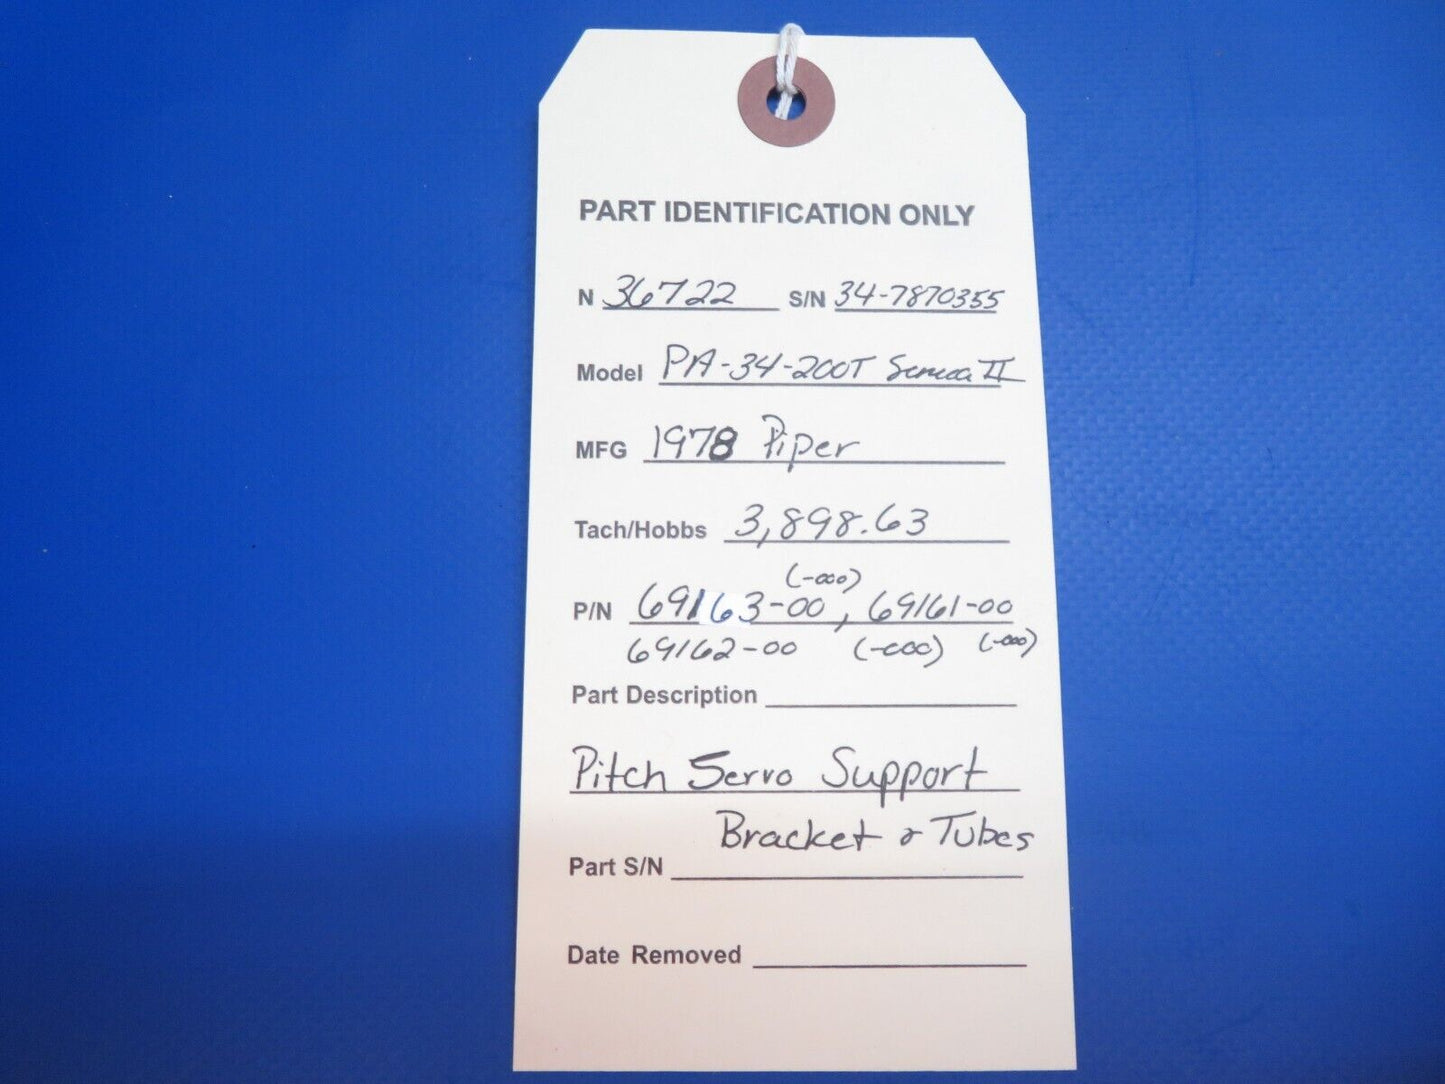 PART IDENTIFICATION ONLY
N 36722 S/N 34-7870355
Model PA-34-200T Seneca II
MFG 1978 Piper
Tach/Hobbs 3,898.63
(-000)
P/N 69163-00, 69161-00
69162-00 (-000) (-000)
Part Description
Pitch Servo Support
Bracket & Tubes
Part S/N
Date Removed